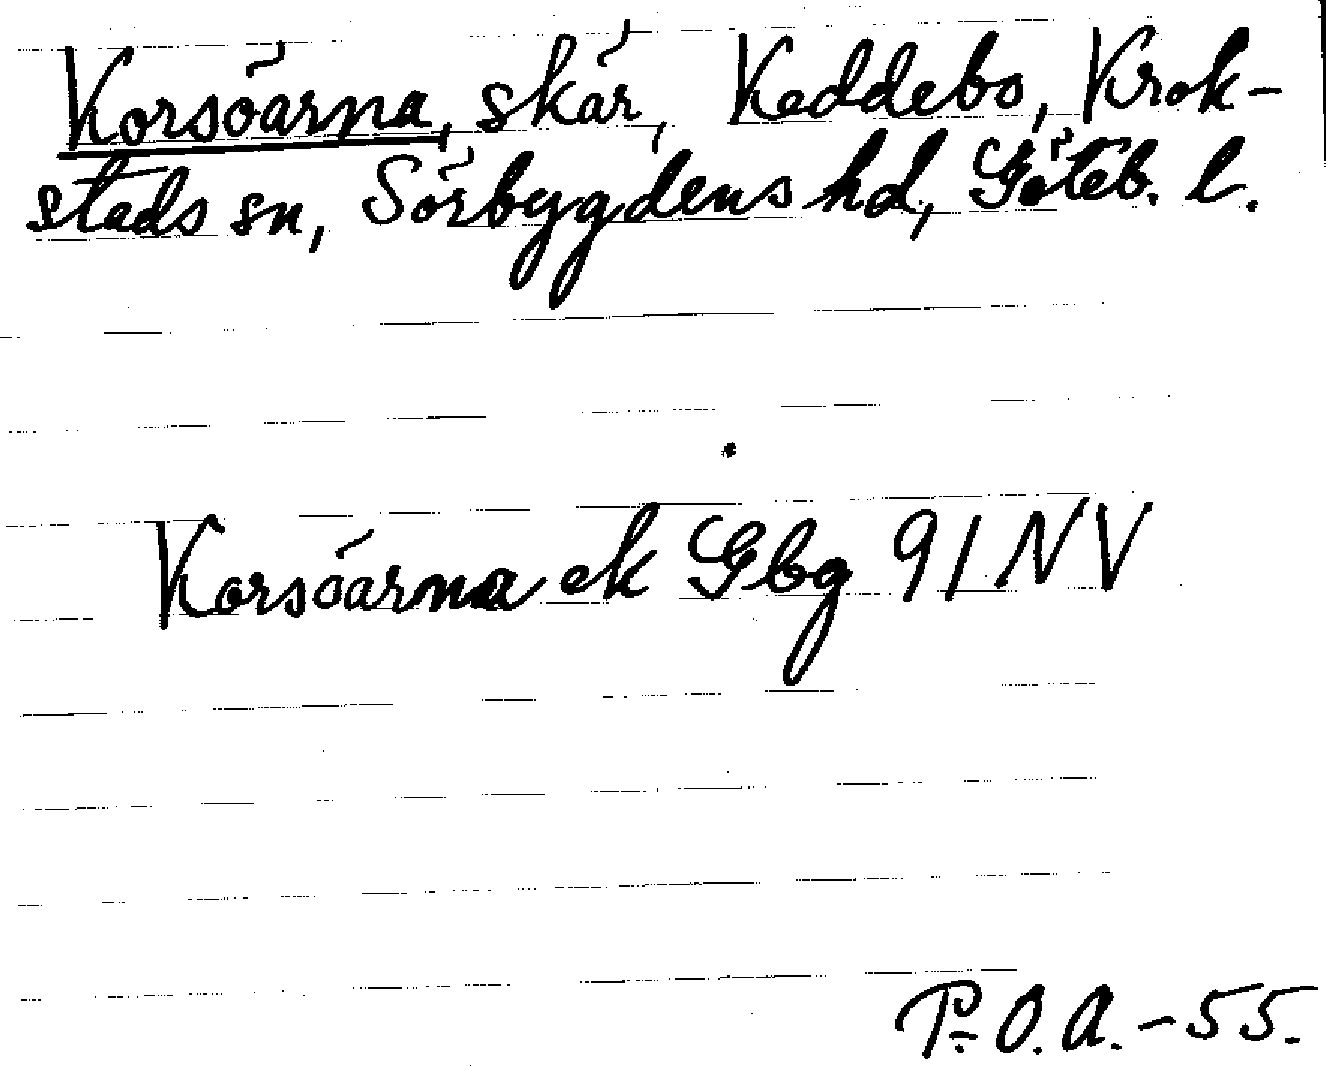 Korsöarna, skär, Keddebo, Krok-
stads sn, Sörbygdens hd, Göteb. l.
Korsöarna ek Gbg 91 NV
P. O. A. - 55.